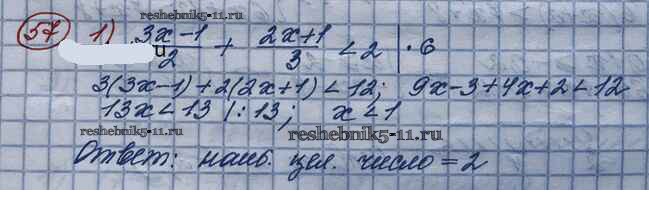 reshebnik5-11.ru
57 1) (3x-1)/2 + (2x+1)/3 < 2 | · 6
3(3x-1)+2(2x+1) < 12; 9x-3+4x+2 < 12
13x < 13 |: 13; x < 1
reshebnik5-11.ru reshebnik5-11.ru
Ответ: наиб. цел. число = 2
reshebnik5-11.ru